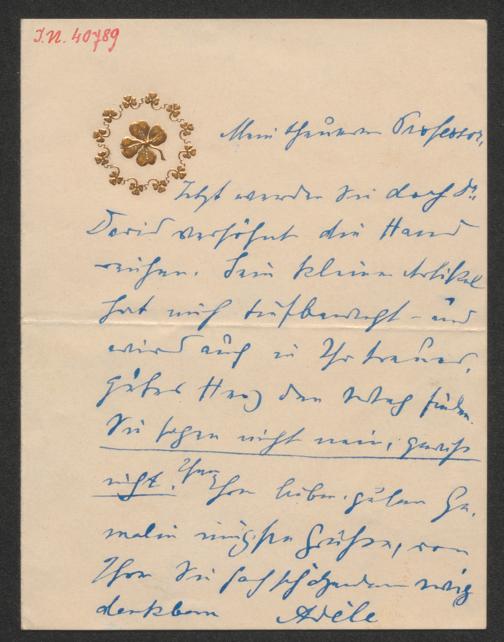 I.N. 40789
Mein theurer Professor,
Jetzt werden Sie doch Dr
David versöhnt die Hand
reichen. Sein kleiner Artikel
hat mich tiefbewegt - und
wird auch in Ihr treues,
gutes Herz den Weg finden.
Sie sagen nicht nein, gewiss
nicht. Ihnen Ihrer lieben guten Ge-
malin innigste Grüsse, von
Ihrer Sie hochschätzenden ewig
dankbaren Adèle